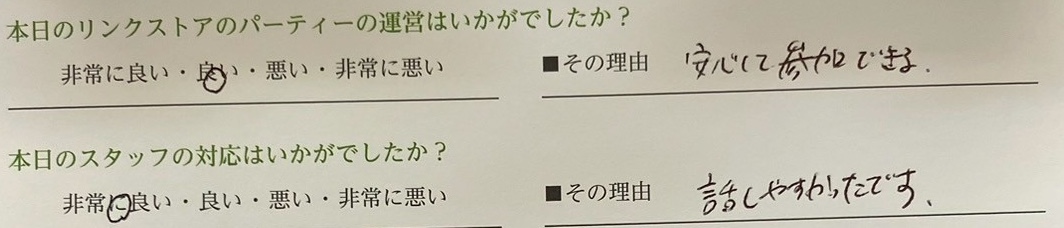 本日のリンクストアのパーティーの運営はいかがでしたか？
非常に良い・良い・悪い・非常に悪い ■その理由 安心して参加できる.
本日のスタッフの対応はいかがでしたか？
非常に良い・良い・悪い・非常に悪い ■その理由 話しやすかったです、